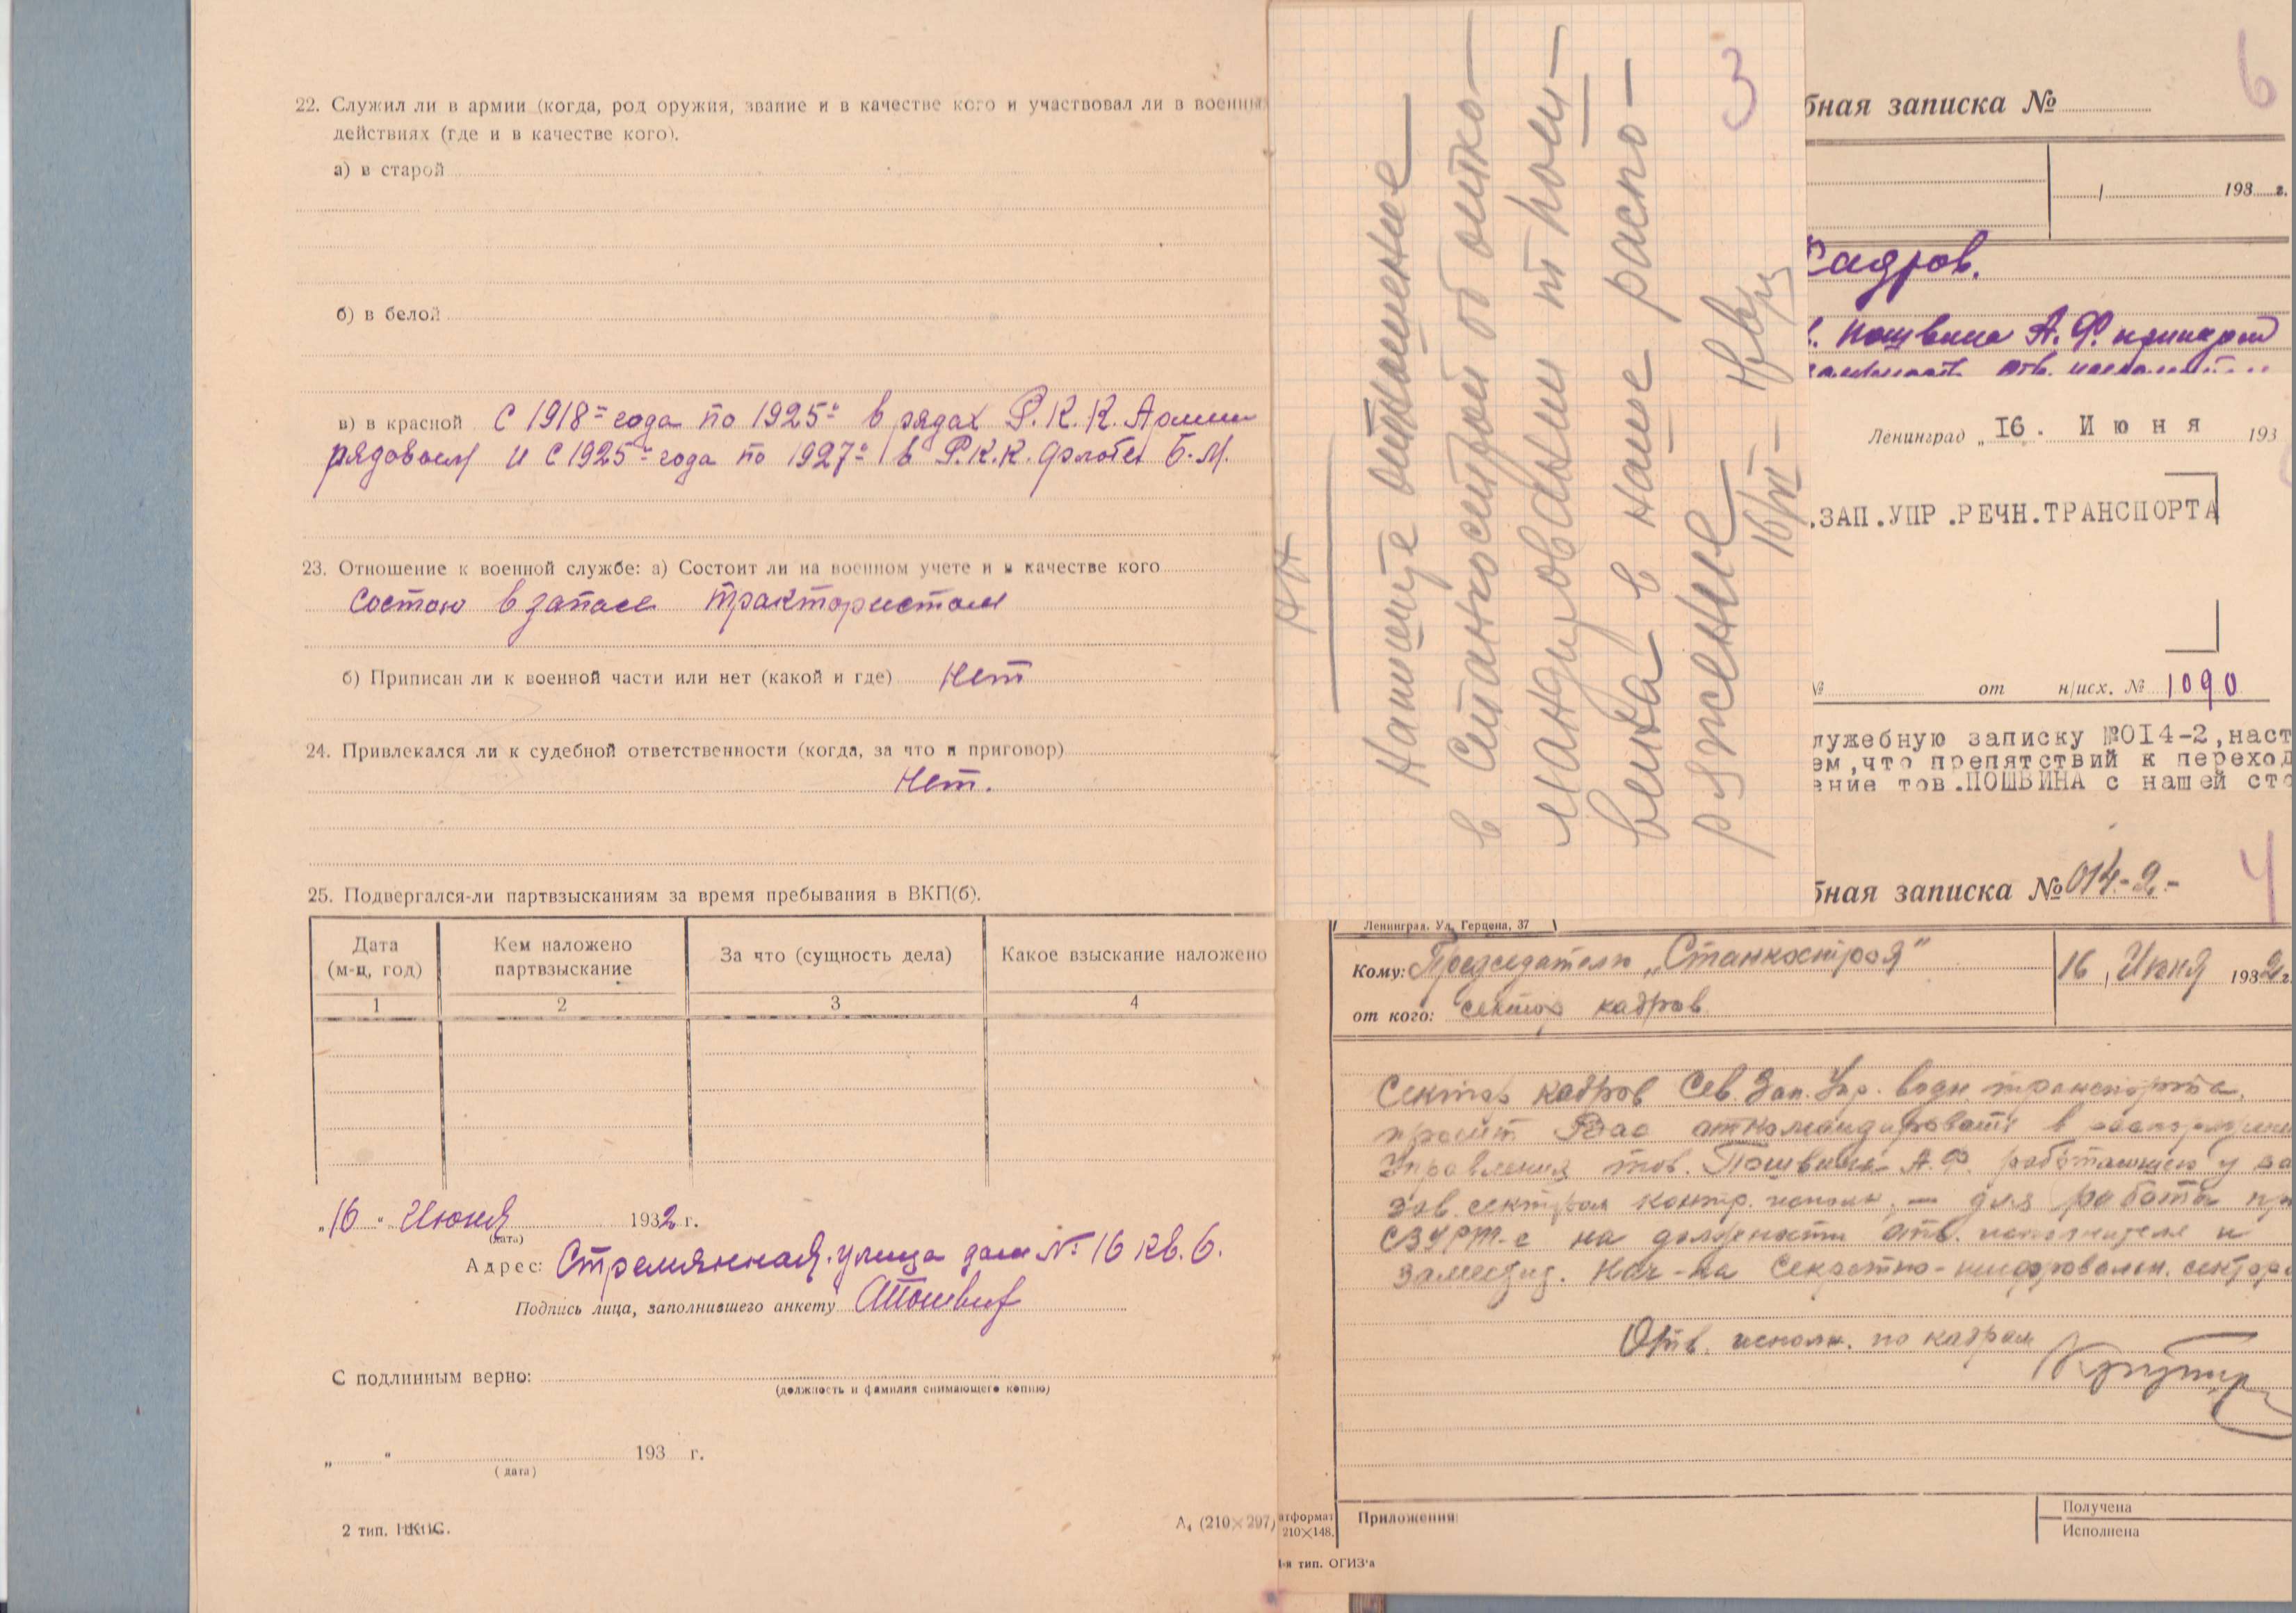 22. Служил ли в армии (когда, род оружия, звание и в качестве кого и участвовал ли в военны
действиях (где и в качестве кого).
а) в старой
б) в белой
в) в красной с 1918 = года по 1925 = в рядах Р.К.К. Армии
рядовым и с 1925 = года по 1927 = в Р.К.К. флоте Б.М.
23. Отношение к военной службе: а) Состоит ли на военном учете и в качестве кого
Состою в запасе трактористом
б) Приписан ли к военной части или нет (какой и где) Нет
24. Привлекался ли к судебной ответственности (когда, за что и приговор)
Нет.
25. Подвергался-ли партвзысканиям за время пребывания в ВКП(б).
Дата
(м-ц, год)
Кем наложено
партвзыскание
За что (сущность дела)
Какое взыскание наложено
1 2 3 4
„16" Июня 1932 г.
(дата)
Адрес: Стремянная улица дом № 16 кв. 6.
Подпись лица, заполнившего анкету АПошвин
С подлинным верно:
(должность и фамилия снимающего копию)
„ " 193 г.
(дата)
2 тип. НКПС.
А₄ (210×297)
3
Напишите отношение
в Станкострой об отко-
мандировании т Пош-
вина в наше распо-
ряжение
16/VI
6
бная записка №
193 г.
Кадров.
Пошвина А.Ф.
отв.
Ленинград „16. Июня 193
.ЗАП.УПР.РЕЧН.ТРАНСПОРТА
№ от н/исх. № 1090
лужебную записку №014-2,наст
ем,что препятствий к переход
ение тов.ПОШВИНА с нашей сто
4
бная записка № 014-2.-
Ленинград. Ул. Герцена, 37
Кому: Председателю „Станкостроя"
16, Июня 1932 г.
от кого: сектор кадров
Сектор кадров Сев. Зап. Упр. водн. транспорта,
просит Вас откомандировать в распоряжени
Управления тов. Пошвина А.Ф. работающего у ва
зав. сектором контр. исполн., – для работы пр
СЗУРТ-е на должности отв. исполнителя и
заместит. Нач-ка Секретно-шифровальн. сектора
Отв. исполн. по кадрам
Приложения:
Получена
Исполнена
атформат
210×148.
1-я тип. ОГИЗ'а